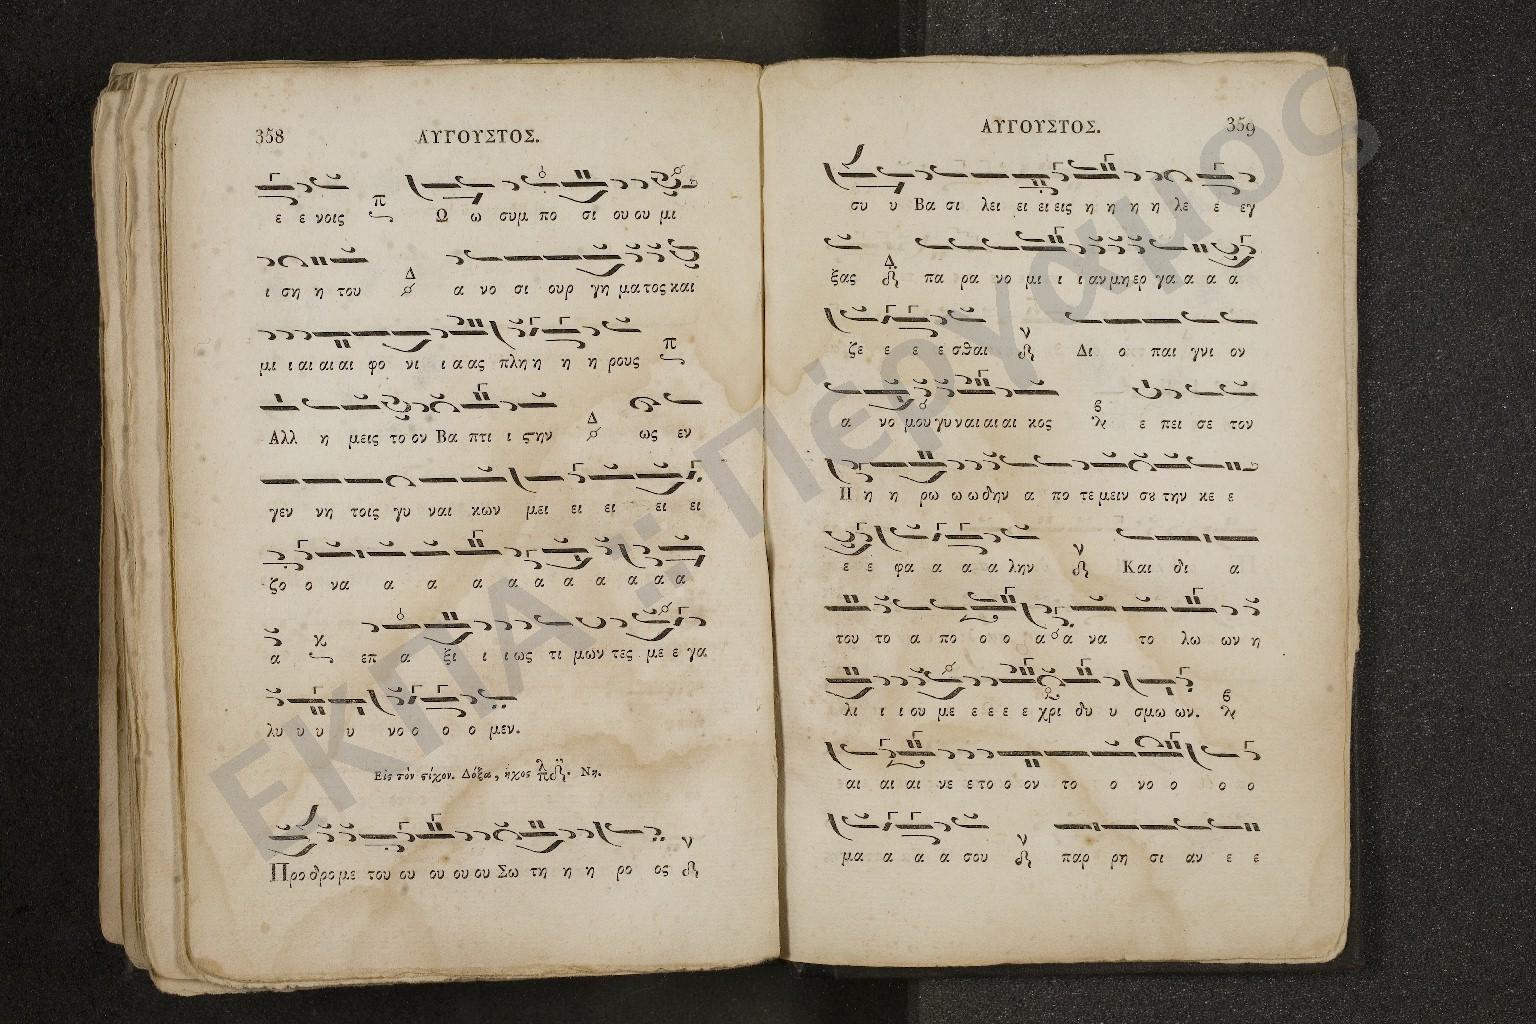 358 ΑΥΓΟΥΣΤΟΣ.
ε ε νοις Ω ω συμ πο σι ου ου μι
ι ση η του α νο σι ουρ γη ματος και
μι ι αι αι αι φο νι ι α ας πλη η η η ρους
Αλλ η μεις το ον Βα πτι ι ςην ως εν
γεν νη τοις γυ ναι κων μει ει ει ει ει
ζο ο να α α α α α α α α α
α επ α ξι ι ι ως τι μων τες με ε γα
λυ υ υ υ νο ο ο ο μεν.
Εἰς τὸν ςίχον. Δόξα, ἦχος Νη.
Προ δρο με του ου ου ου ου Σω τη η η ρο ος
ΑΥΓΟΥΣΤΟΣ. 359
συ υ Βα σι λει ει ει εις η η η η λε ε εγ
ξας πα ρα νο μι ι ι αν μη ερ γα α α α
ζε ε ε ε σθαι Δι ο παι γνι ον
α νο μου γυ ναι αι αι κος ε πει σε τον
Η η η ρω ω ω δην α πο τε μειν σȣ την κε ε
ε ε φα α α α λην Και δι α
του το α πο ο ο α α α να το λω ων η
λι ι ι ου με ε ε ε ε χρι δυ υ σμω ων.
αι αι αι νε ε το ο ον το ο νο ο ο ο
μα α α α σου παρ ρη σι αν ε ε
ΕΚΠΑ :: Πέργαμος